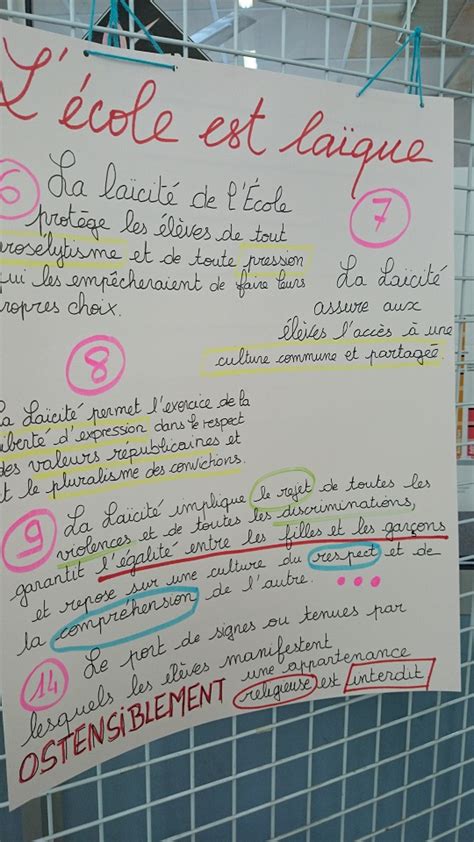 L'école est laïque
6 La laïcité de l'École
protège les élèves de tout
prosélytisme et de toute pression
qui les empêcheraient de faire leurs
propres choix.
7
La Laïcité
assure aux
élèves l'accès à une
culture commune et partagée.
8
La Laïcité permet l'exercice de la
liberté d'expression dans le respect
des valeurs républicaines et
et le pluralisme des convictions.
9 La Laïcité implique le rejet de toutes les
violences et de toutes les discriminations,
garantit l'égalité entre les filles et les garçons
et repose sur une culture du respect et de
la compréhension de l'autre. ...
14 Le port de signes ou tenues par
lesquels les élèves manifestent
OSTENSIBLEMENT une appartenance
religieuse est interdit